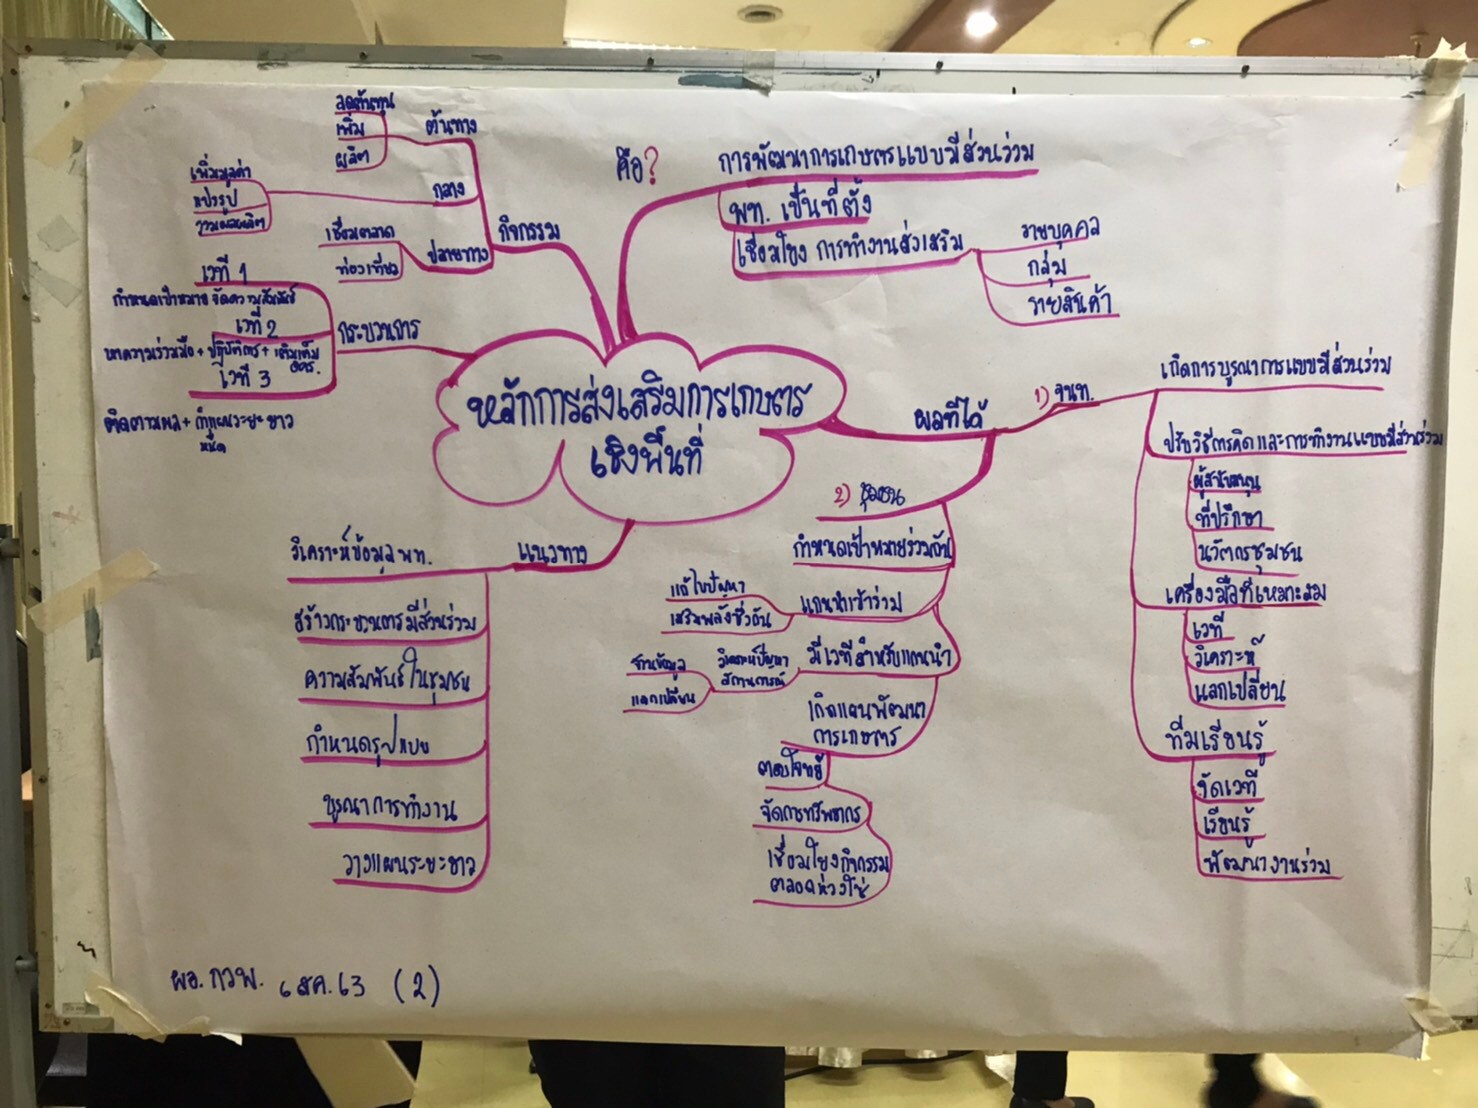 หลักการส่งเสริมการเกษตร
เชิงพื้นที่
คือ?
การพัฒนาการเกษตรแบบมีส่วนร่วม
พท. เป็นที่ตั้ง
เชื่อมโยง การทำงานส่งเสริม
รายบุคคล
กลุ่ม
รายสินค้า
กิจกรรม
ต้นทาง
ลดต้นทุน
เพิ่ม
ผลิต
กลาง
เพิ่มมูลค่า
แปรรูป
รวมผลผลิต
ปลายทาง
เชื่อมตลาด
ท่องเที่ยว
กระบวนการ
เวที 1
กำหนดเป้าหมาย จัดความสัมพันธ์
เวที 2
หาความร่วมมือ + ปฏิบัติการ + เติมเต็ม
เวที 3
ติดตามผล + ทำแผนระยะยาว
แนวทาง
วิเคราะห์ข้อมูล พท.
สร้างกระบวนการมีส่วนร่วม
ความสัมพันธ์ในชุมชน
กำหนดรูปแบบ
บูรณาการทำงาน
วางแผนระยะยาว
ผลที่ได้
1) จนท.
เกิดการบูรณาการแบบมีส่วนร่วม
ปรับวิธีการคิดและการทำงานแบบมีส่วนร่วม
ผู้สนับสนุน
ที่ปรึกษา
นวัตกรชุมชน
เครื่องมือที่เหมาะสม
เวที
วิเคราะห์
แลกเปลี่ยน
ทีมเรียนรู้
จัดเวที
เรียนรู้
พัฒนางานร่วม
2) ชุมชน
กำหนดเป้าหมายร่วมกัน
แกนนำเข้าร่วม
แก้ไขปัญหา
เสริมพลังซึ่งกัน
มีเวทีสำหรับแกนนำ
วิเคราะห์ปัญหา
สถานการณ์
ฐานข้อมูล
แลกเปลี่ยน
เกิดแผนพัฒนา
การเกษตร
ตอบโจทย์
จัดการทรัพยากร
เชื่อมโยงกิจกรรม
ตลอดห่วงโซ่
ผอ. กวพ. 6 สค. 63 (2)